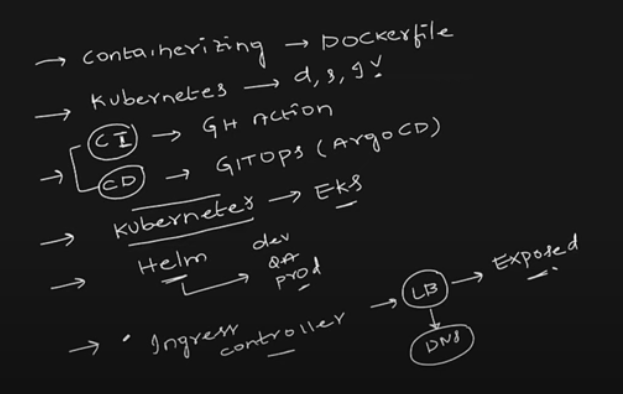 → Containerizing → DOCKerfile
→ Kubernetes → d, s, g
CI → GH Action
→ CD → GITOPS (ArgoCD)
→ Kubernetes → EKS
→ Helm → dev
QA
prod
→ • Ingress controller → LB → Exposed
DNS